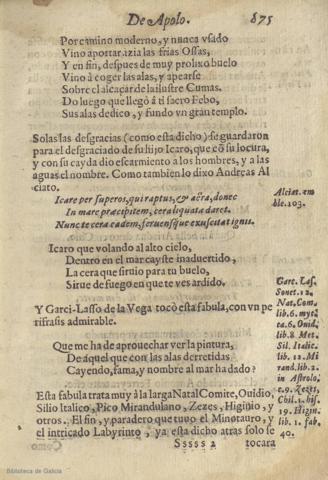 De Apolo. 875
Por camino moderno, y nunca vsado
Vino aportar azia las frias Ossas,
Y en fin, despues de muy prolixo buelo
Vino à coger las alas, y apearse
Sobre el alcaçar de la ilustre Cumas.
Do luego que llegò â ti sacro Febo,
Sus alas dedico, y fundo vn gran templo.
Solas las desgracias (como esta dicho) se guardaron
para el desgraciado de su hijo Icaro, que cō su locura,
y con su cayda dio escarmiento a los hombres, y a las
aguas el nombre. Como tambien lo dixo Andreas Al
ciato.
Alciat. em
ble. 103.
Icare per superos, qui raptus, & aëra, donec
In mare præcipitem, cera liquata daret.
Nunc te cera eadem, feruensque exuscitat ignis.
Icaro que volando al alto cielo,
Dentro en el mar cayste inaduertido,
La cera que siruio para tu buelo,
Sirue de fuego en que te ves ardido.
Y Garci-Lasso de la Vega tocò esta fabula, con vn pe
rifrasis admirable.
Que me ha de aprouechar ver la pintura,
De aquel que con las alas derretidas
Cayendo, fama, y nombre al mar ha dado?
Esta fabula trata muy à la larga Natal Comite, Ouidio,
Silio Italico, Pico Mirandulano, Zezes, Higinio, y
otros. El fin, y paradero que tuuo el Minotauro, y
el intricado Labyrinto, ya esta dicho atras solo se
Garc. Las.
Sonet. 12.
Nat. Com.
lib. 6. myt.
ta. 6. Ouid.
lib. 8 Met.
Sil. Italic.
lib. 12. Mi
rand. lib. 2.
in Astrolo.
c. 9. Zezes,
Chil. 1. his.
19. Higin.
lib. 1. fab.
40.
Sssss 2 tocara
Biblioteca de Galicia